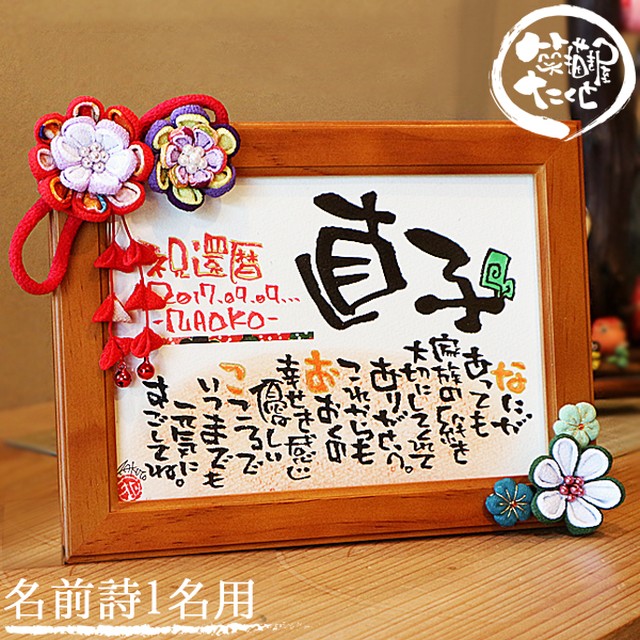 笑描き屋
たくと
直子
祝還暦
2017.09.09...
-NAOKO-
なにが
あっても
家族の絆を
大切にしてくれて
ありがとう。
これからも
おおくの
幸せを感じ
優しい
こころで
いつまでも
元気に
すごしてね。
名前詩1名用